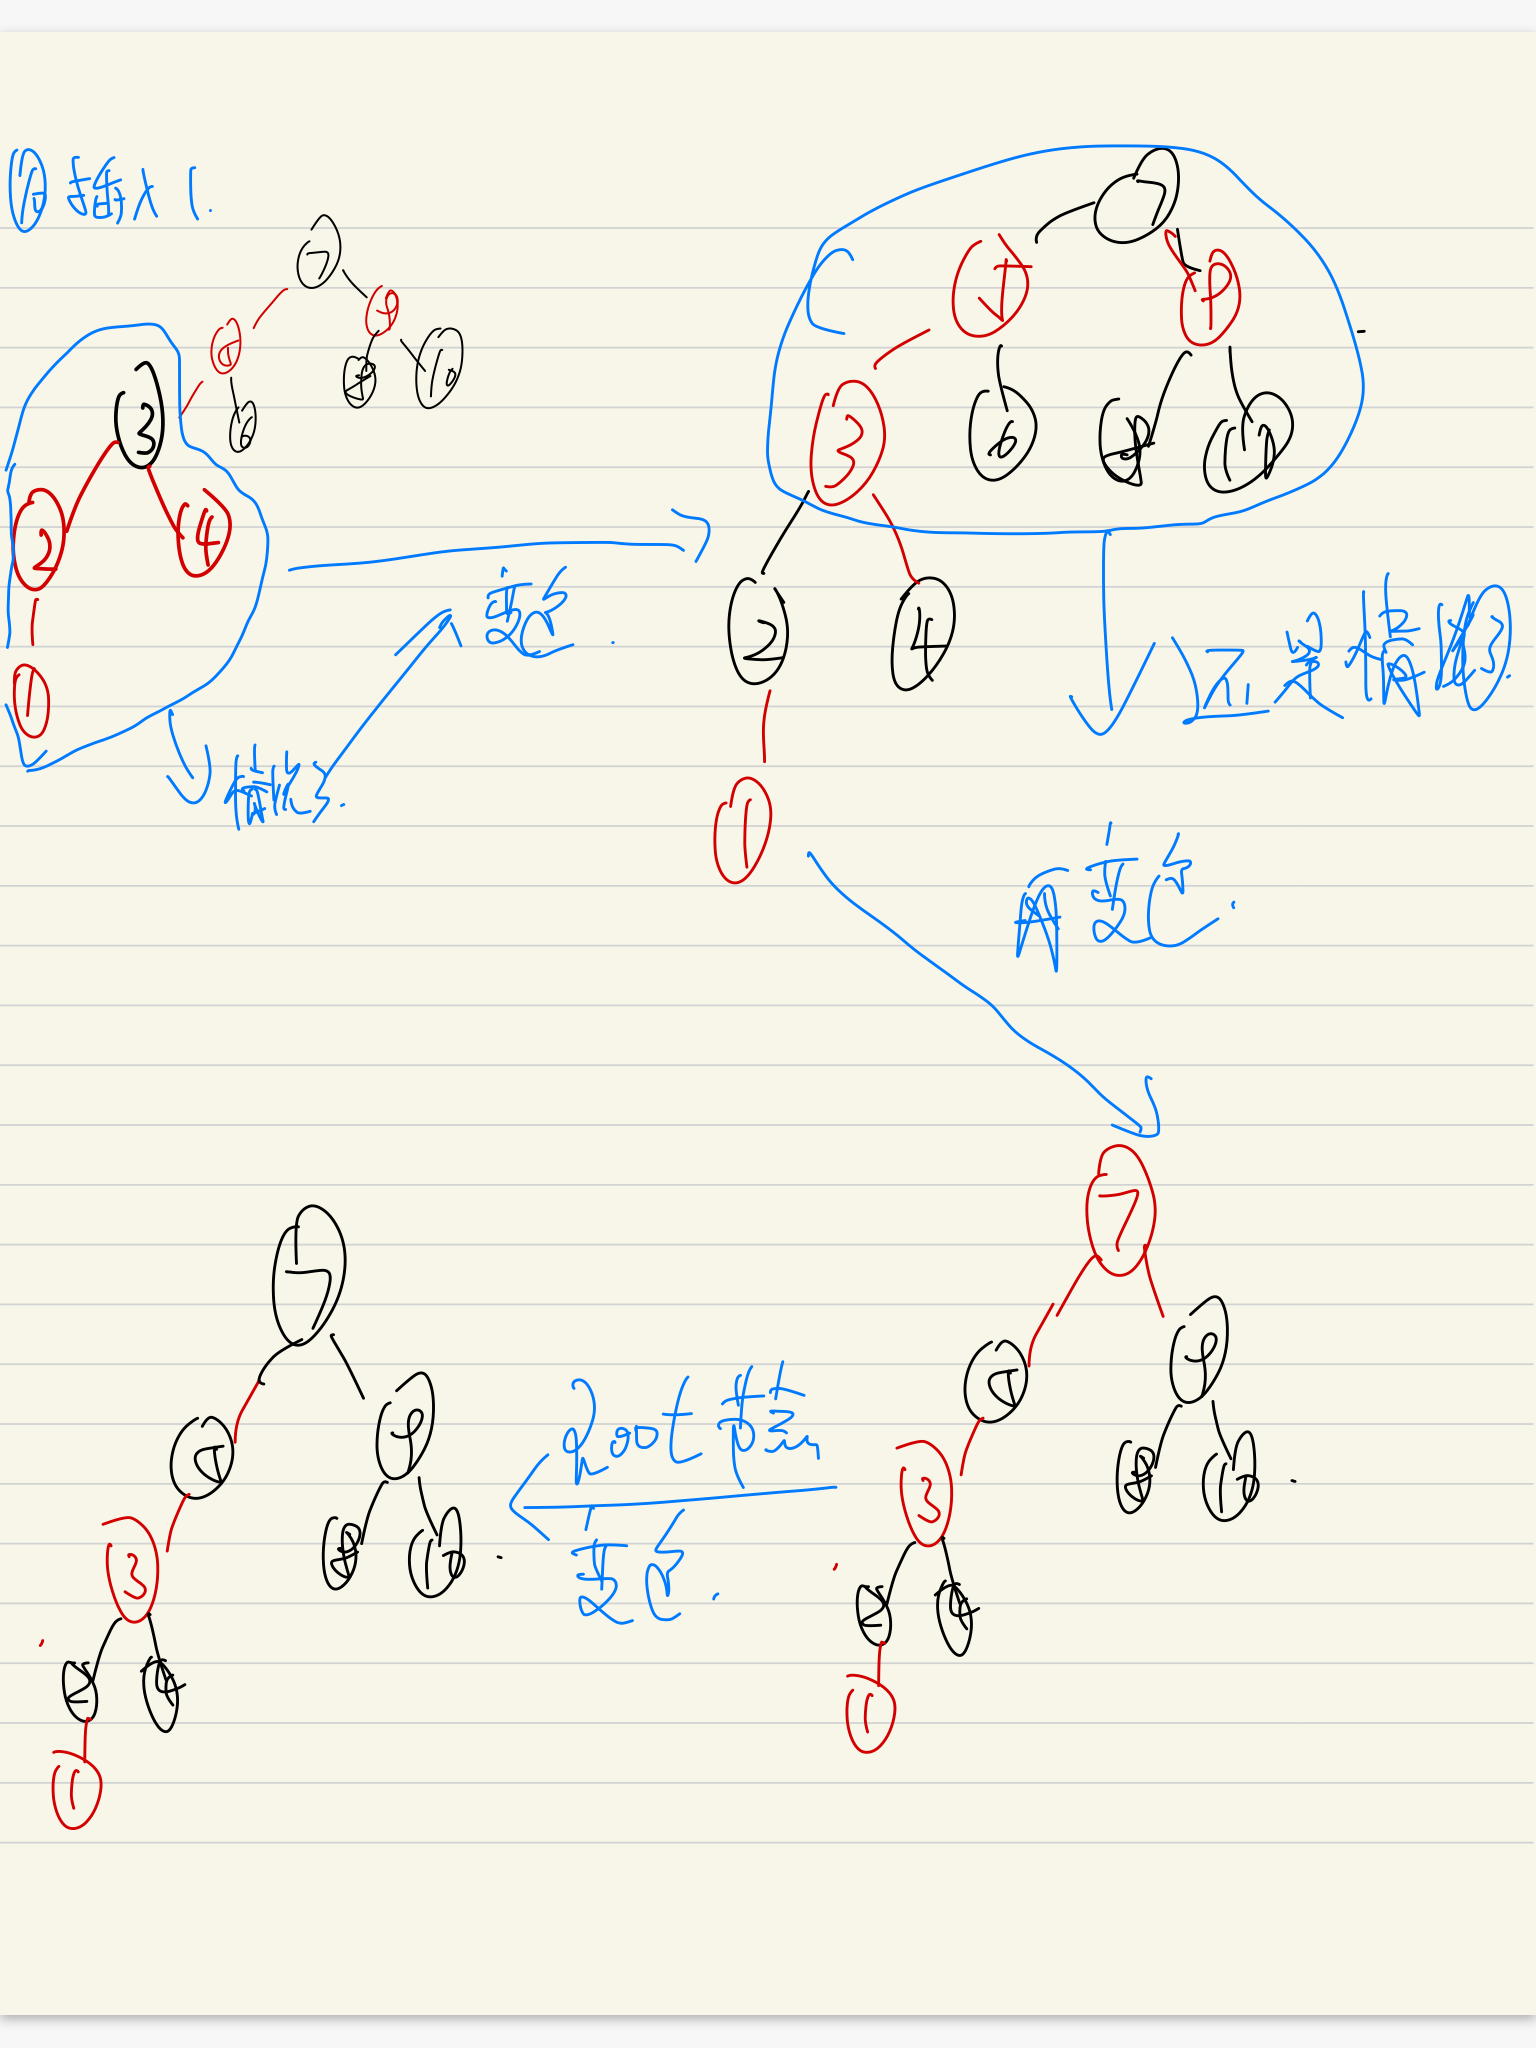 ⑩插入1.
7
9
5
3
6
8
10
2
4
1
情况3.
变色.
7
5
9
3
6
8
10
2
4
1
还是情况3.
再变色.
7
5
9
3
8
10
2
4
1
Root节点
变色.
7
5
9
3
8
10
2
4
1